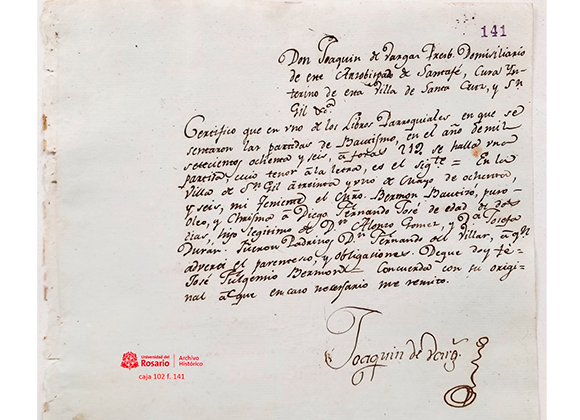 141
Don Joaquin de Vargas Presb. Domiciliario
de este Arzobispado de Santafé, Cura Yn-
terino de esta Villa de Santa Cruz, y Sn
Gil &a
Certifico que en uno de los Libros Parroquiales en que se
sentaron las partidas de Bautismo, en el año de mil
setecientos ochenta y seis, a fotas 212 se halla una
partida, cuio tenor a la letra, es el sigte = En la
Villa de Sn Gil a treinta y uno de Mayo de ochenta,
y seis, mi Teniente el Curo. Bermon Bautizó, puso
Oleo, y Chrisma a Diego Fernando José de edad de dos
dias, hijo legitimo de Dn Alonso Gomez, y Da Josefa
Duran. Fueron Padrinos Dn Fernando del Villar, a qn
adverti el parentesco, y obligaciones. De que doy fe =
José Fulgencio Bermond = Concuerda con su origi-
nal a l que en caso necesario me remito.
Joaquin de Varg.s
Universidad del Rosario | Archivo Histórico
caja 102 f. 141